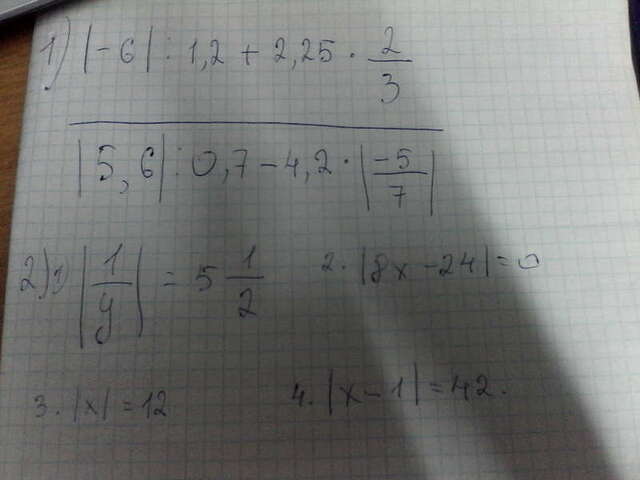 1) |-6| : 1,2 + 2,25 · 2/3
|5,6| : 0,7 - 4,2 · |-5/7|
2) 1) |1/y| = 5 1/2 2. |8x - 24| = 0
3. |x| = 12 4. |x - 1| = 42.